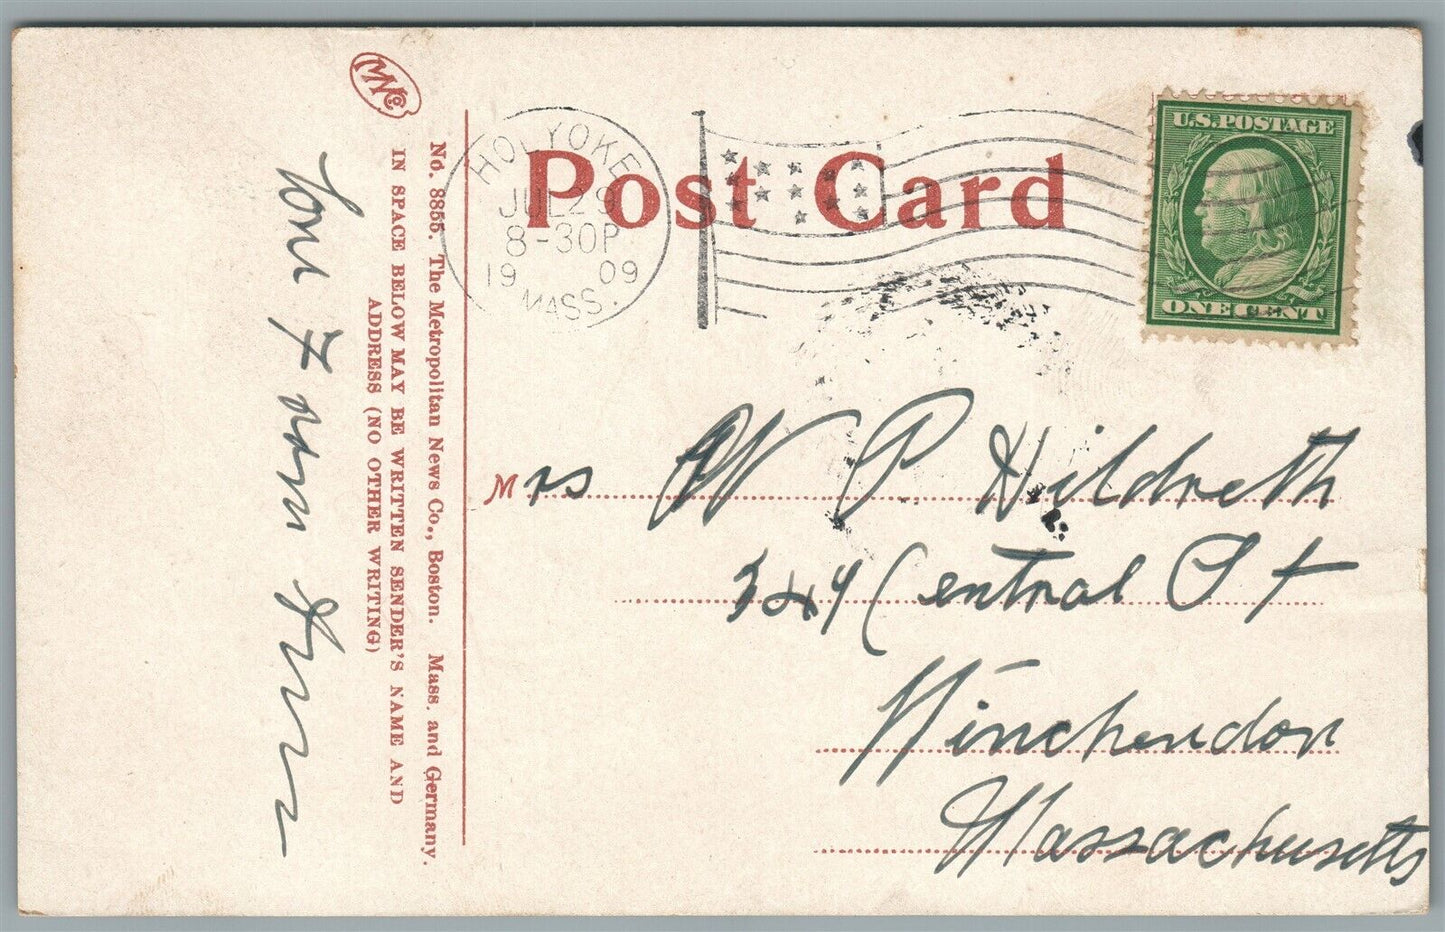 Post Card
U.S. POSTAGE
ONE CENT
HOLYOKE
JUL 29
8-30P
19 09
MASS.
Mrs W P. Hildreth
344 Central St
Winchendon
Massachusetts
MNCo.
No. 8855. The Metropolitan News Co., Boston. Mass. and Germany.
IN SPACE BELOW MAY BE WRITTEN SENDER'S NAME AND
ADDRESS (NO OTHER WRITING)